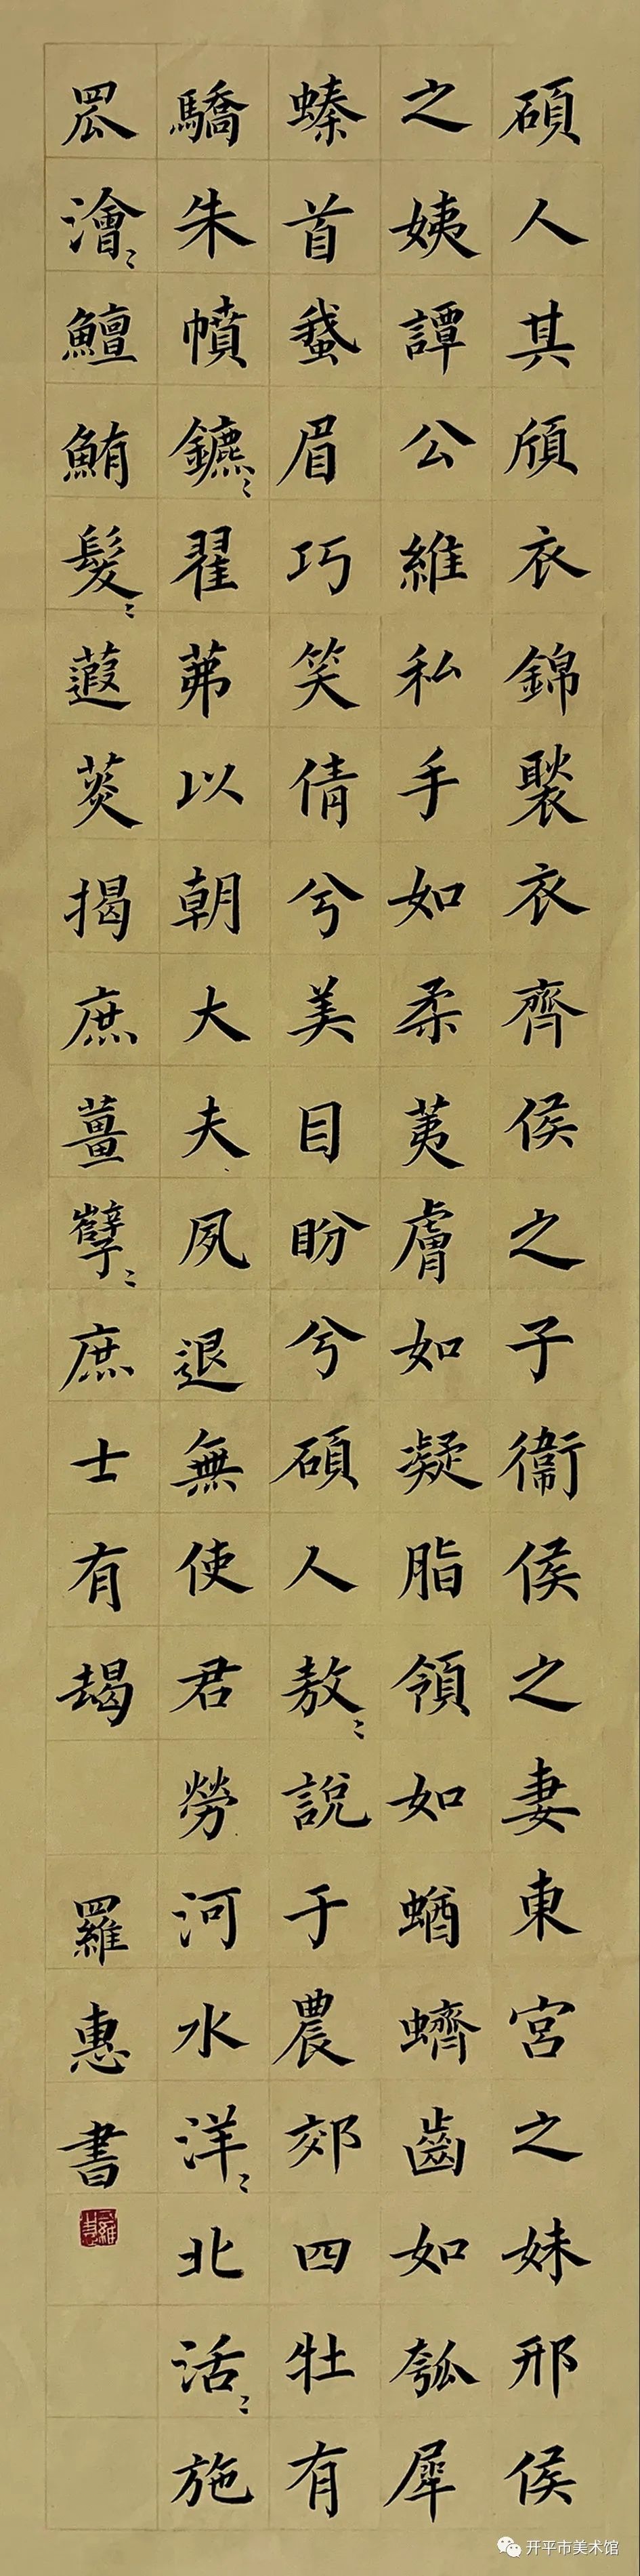 碩人其頎衣錦褧衣齊侯之子衛侯之妻東宮之妹邢侯
之姨譚公維私手如柔荑膚如凝脂領如蝤蠐齒如瓠犀
螓首䖸眉巧笑倩兮美目盼兮碩人敖〻說于農郊四牡有
驕朱幩鑣〻翟茀以朝大夫夙退無使君勞河水洋〻北活〻施
罛澮〻鱣鮪髮〻蕸菼揭庶薑孽〻庶士有朅
羅惠書
开平市美术馆